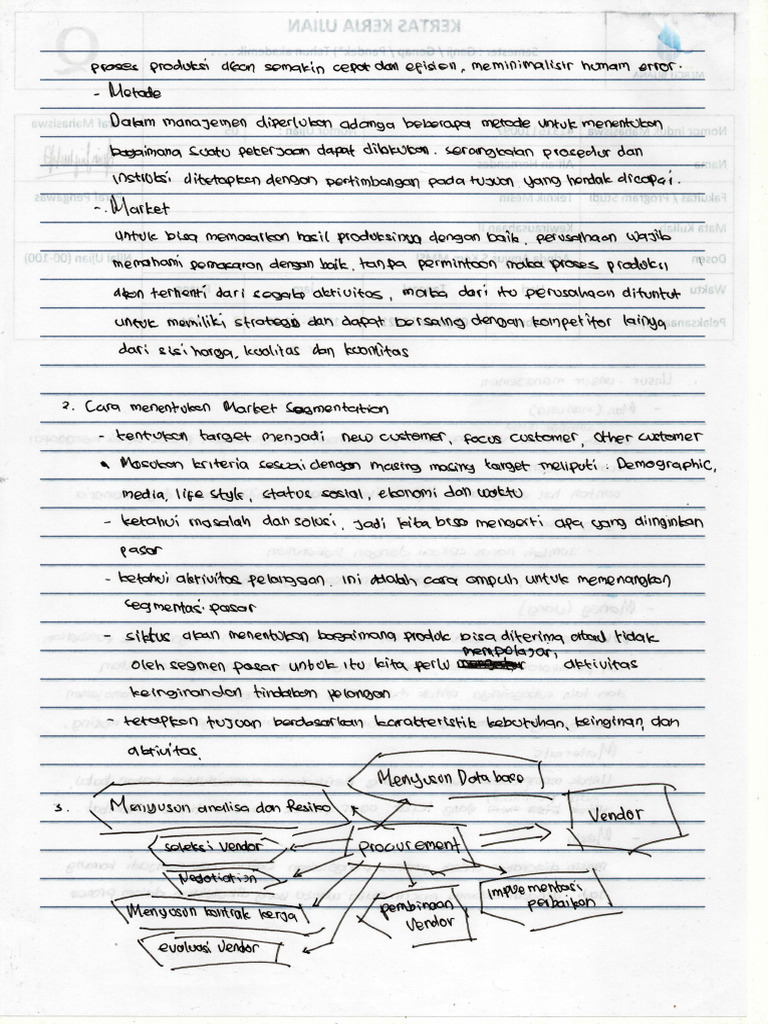 proses produksi akan semakin cepat dan efisien, meminimalisir humam error.
- Metode
Dalam manajemen diperlukan adanya beberapa metode untuk menentukan
bagaimana suatu pekerjaan dapat dilakukan. serangkaian prosedur dan
instruksi ditetapkan dengan pertimbangan pada tujuan yang hendak dicapai.
- Market
untuk bisa memasarkan hasil produksinya dengan baik, perusahaan wajib
memahami pemasaran dengan baik, tanpa permintaan maka proses produksi
akan terhenti dari segala aktivitas, maka dari itu perusahaan dituntut
untuk memiliki strategi dan dapat bersaing dengan kompetitor lainya
dari sisi harga, kualitas dan kuantitas
2. Cara menentukan Market Segmentation
- tentukan target menjadi new customer, focus customer, other customer
• Masukan kriteria sesuai dengan masing masing target meliputi. Demographic,
media, life style, status sosial, ekonomi dan waktu
- ketahui masalah dan solusi, jadi kita bisa mengerti apa yang diinginkan
pasar
- ketahui aktivitas pelanggan. ini adalah cara ampuh untuk memenangkan
segmentasi pasar
- siklus akan menentukan bagaimana produk bisa diterima atau tidak
oleh segmen pasar untuk itu kita perlu mempelajari aktivitas
keinginan dan tindakan pelangan
- tetapkan tujuan berdasarkan karakteristik kebutuhan, keinginan, dan
aktivitas.
Menyusun Database
3. Menyusun analisa dan Resiko
Vendor
seleksi vendor
procurement
Negotiation
Menyusun kontrak kerja
pembinaan
Vendor
implementasi
perbaikan
evaluasi vendor